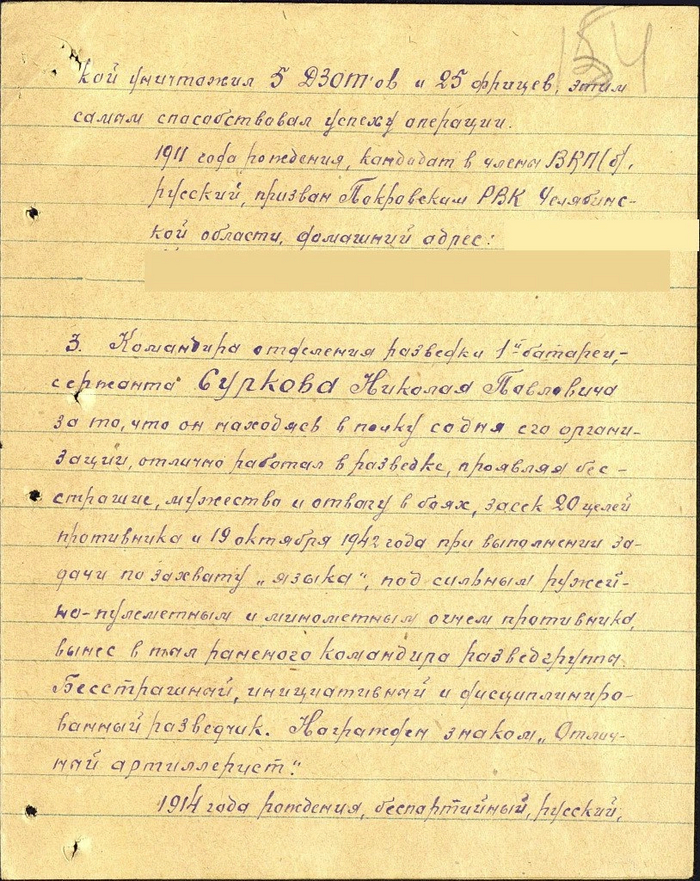 154
кой уничтожил 5 ДЗОТ'ов и 25 фрицев, этим
самым способствовал успеху операции.
1911 года рождения, кандидат в члены ВКП(б),
русский, призван Покровским РВК Челябинс-
кой области, домашний адрес:
3. Командира отделения разведки 1й батареи,-
сержанта Суркова Николая Павловича
за то, что он находясь в полку со дня его органи-
зации, отлично работал в разведке, проявляя бес-
страшие, мужества и отвагу в боях, засек 20 целей
противника и 19 октября 1942 года при выполнении за-
дачи по захвату „языка", под сильным ружей-
но-пулеметным и минометным огнем противника,
вынес в тыл раненого командира разведгруппы.
Бесстрашный, инициативный и дисциплиниро-
ванный разведчик. Награжден знаком „Отлич-
ный артиллерист."
1914 года рождения, беспартийный, русский,